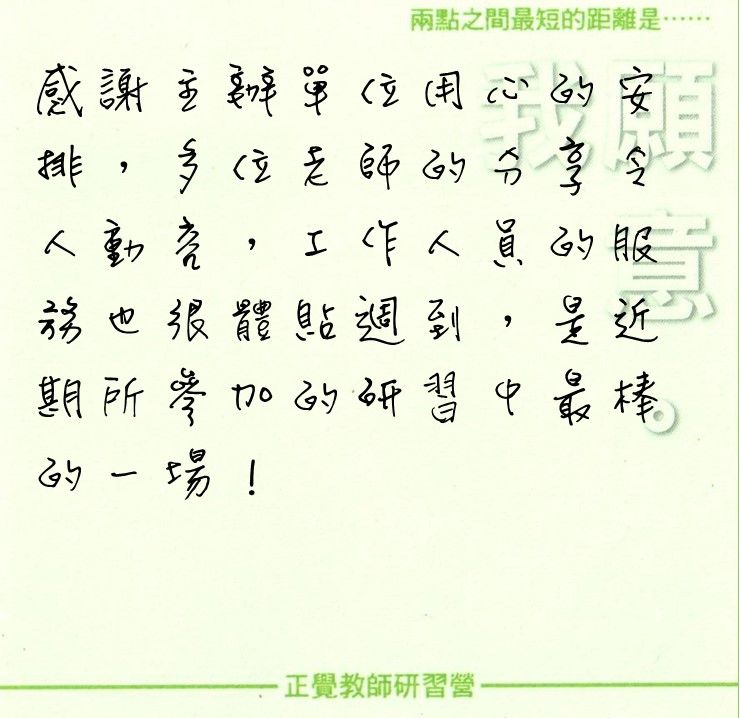 兩點之間最短的距離是……
我願
意。
感謝主辦單位用心的安
排，多位老師的分享令
人動容，工作人員的服
務也很體貼週到，是近
期所參加的研習中最棒
的一場！
正覺教師研習營